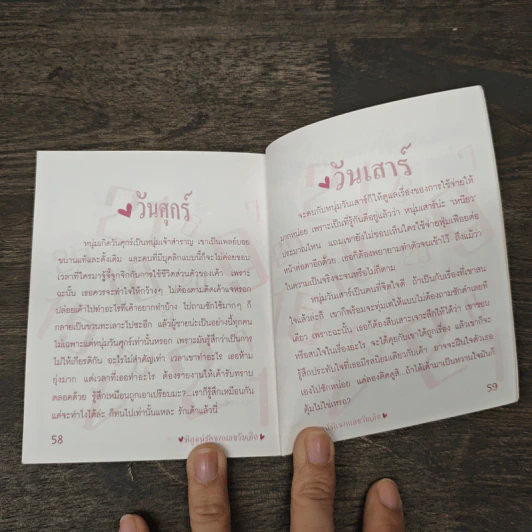 วันศุกร์
หนุ่มเกิดวันศุกร์เป็นหนุ่มเจ้าสำราญ เขาเป็นเพลย์บอย
ขนานแท้และดั้งเดิม และคนที่มีบุคลิกแบบนี้ก็จะไม่ค่อยชอบ
เวลาที่ใครมาจู้จี้จุกจิกกับการใช้ชีวิตส่วนตัวของเค้า เพราะ
ฉะนั้น เธอควรจะทำใจให้กว้างๆ ไม่ต้องตามติดเค้าแจหรอก
ปล่อยเค้าไปทำอะไรที่เค้าอยากทำบ้าง ไปถามซักไซ้มากๆ ก็
กลายเป็นชวนทะเลาะไปซะอีก แล้วผู้ชายน่ะเป็นอย่างนี้ทุกคน
ไม่เฉพาะแค่หนุ่มวันศุกร์เท่านั้นหรอก เพราะมันรู้สึกว่าเป็นการ
ไม่ให้เกียรติกัน อะไรไม่สำคัญเท่า เวลาเขาทำอะไร เธอห้าม
ยุ่งมาก แต่เวลาที่เธอทำอะไร ต้องรายงานให้เค้ารับทราบ
ตลอดด้วย รู้สึกเหมือนถูกเอาเปรียบมะ?...เราก็รู้สึกเหมือนกัน
แต่จะทำไงได้ล่ะ ก็ทนไปเท่านั้นแหละ รักเค้าแล้วนี่
58
วันเสาร์
จะคบกับหนุ่มวันเสาร์ก็ให้ดูแลเรื่องของการใช้จ่ายให้
มากหน่อย เพราะเป็นที่รู้กันดีอยู่แล้วว่า หนุ่มเสาร์น่ะ "เหนียว"
ประมาณไหน แถมเขายังไม่ชอบเห็นใครใช้จ่ายฟุ่มเฟือยต่อ
หน้าต่อตาอีกด้วย เธอก็ต้องพยายามทำตัวจนเข้าไว้ ถึงแม้ว่า
ในความเป็นจริงจะจนหรือไม่ก็ตาม
หนุ่มวันเสาร์เป็นคนที่จิตใจดี ถ้าเป็นกับเรื่องที่เขาสน
ใจแล้วล่ะก็ เขาก็พร้อมจะทุ่มเทได้แบบไม่ต้องถามซักคำเลยที
เดียว เพราะฉะนั้น เธอก็ต้องสืบเสาะเจาะลึกให้ได้ว่า เขาชอบ
หรือสนใจในเรื่องอะไร จะได้คุยกับเขาได้ถูกเรื่อง แล้วเขาก็จะ
รู้สึกประทับใจที่เธอมีรสนิยมเดียวกับเค้า อาจจะฝืนใจตัวเธอ
เองไปซักหน่อย แต่ลองคิดดูสิ ถ้าได้เค้ามาเป็นหวานใจมันก็
คุ้มไม่ใช่เหรอ?
59